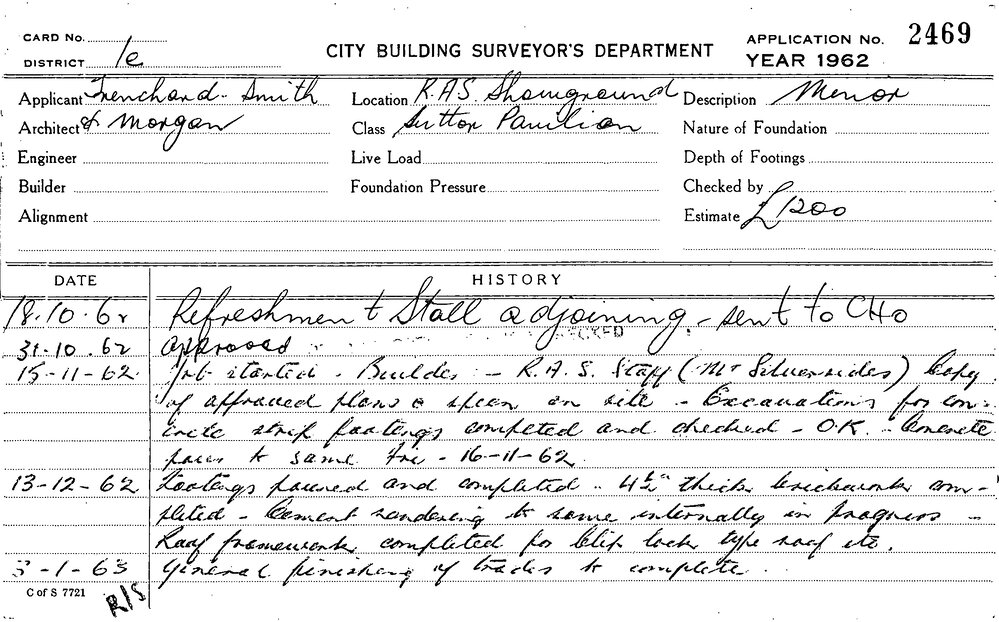 CARD No.
DISTRICT 1e
CITY BUILDING SURVEYOR'S DEPARTMENT
APPLICATION No. 2469
YEAR 1962
Applicant Trenchard-Smith
Location R.A.S. Showground
Description Minor
Architect & Morgan
Class Sutton Pavilion
Nature of Foundation
Engineer
Live Load
Depth of Footings
Builder
Foundation Pressure
Checked by
Alignment
Estimate £1200
DATE HISTORY
18.10.62 Refreshment Stall adjoining - sent to CHO
31.10.62 Approved
15-11-62 Job started - Builder - R.A.S. Staff (Mr Silversides) Copy
of approved plans & specn on site - Excavations for con-
crete strip footings completed and checked - O.K. - Concrete
pour to same Fri - 16-11-62
13-12-62 Footings poured and completed - 4½" thick brickwork com-
pleted - Cement rendering to same internally in progress -
Roof framework completed for Clip lock type roof etc.
3-1-63 General finishing of trades to complete
C of S 7721
R/S